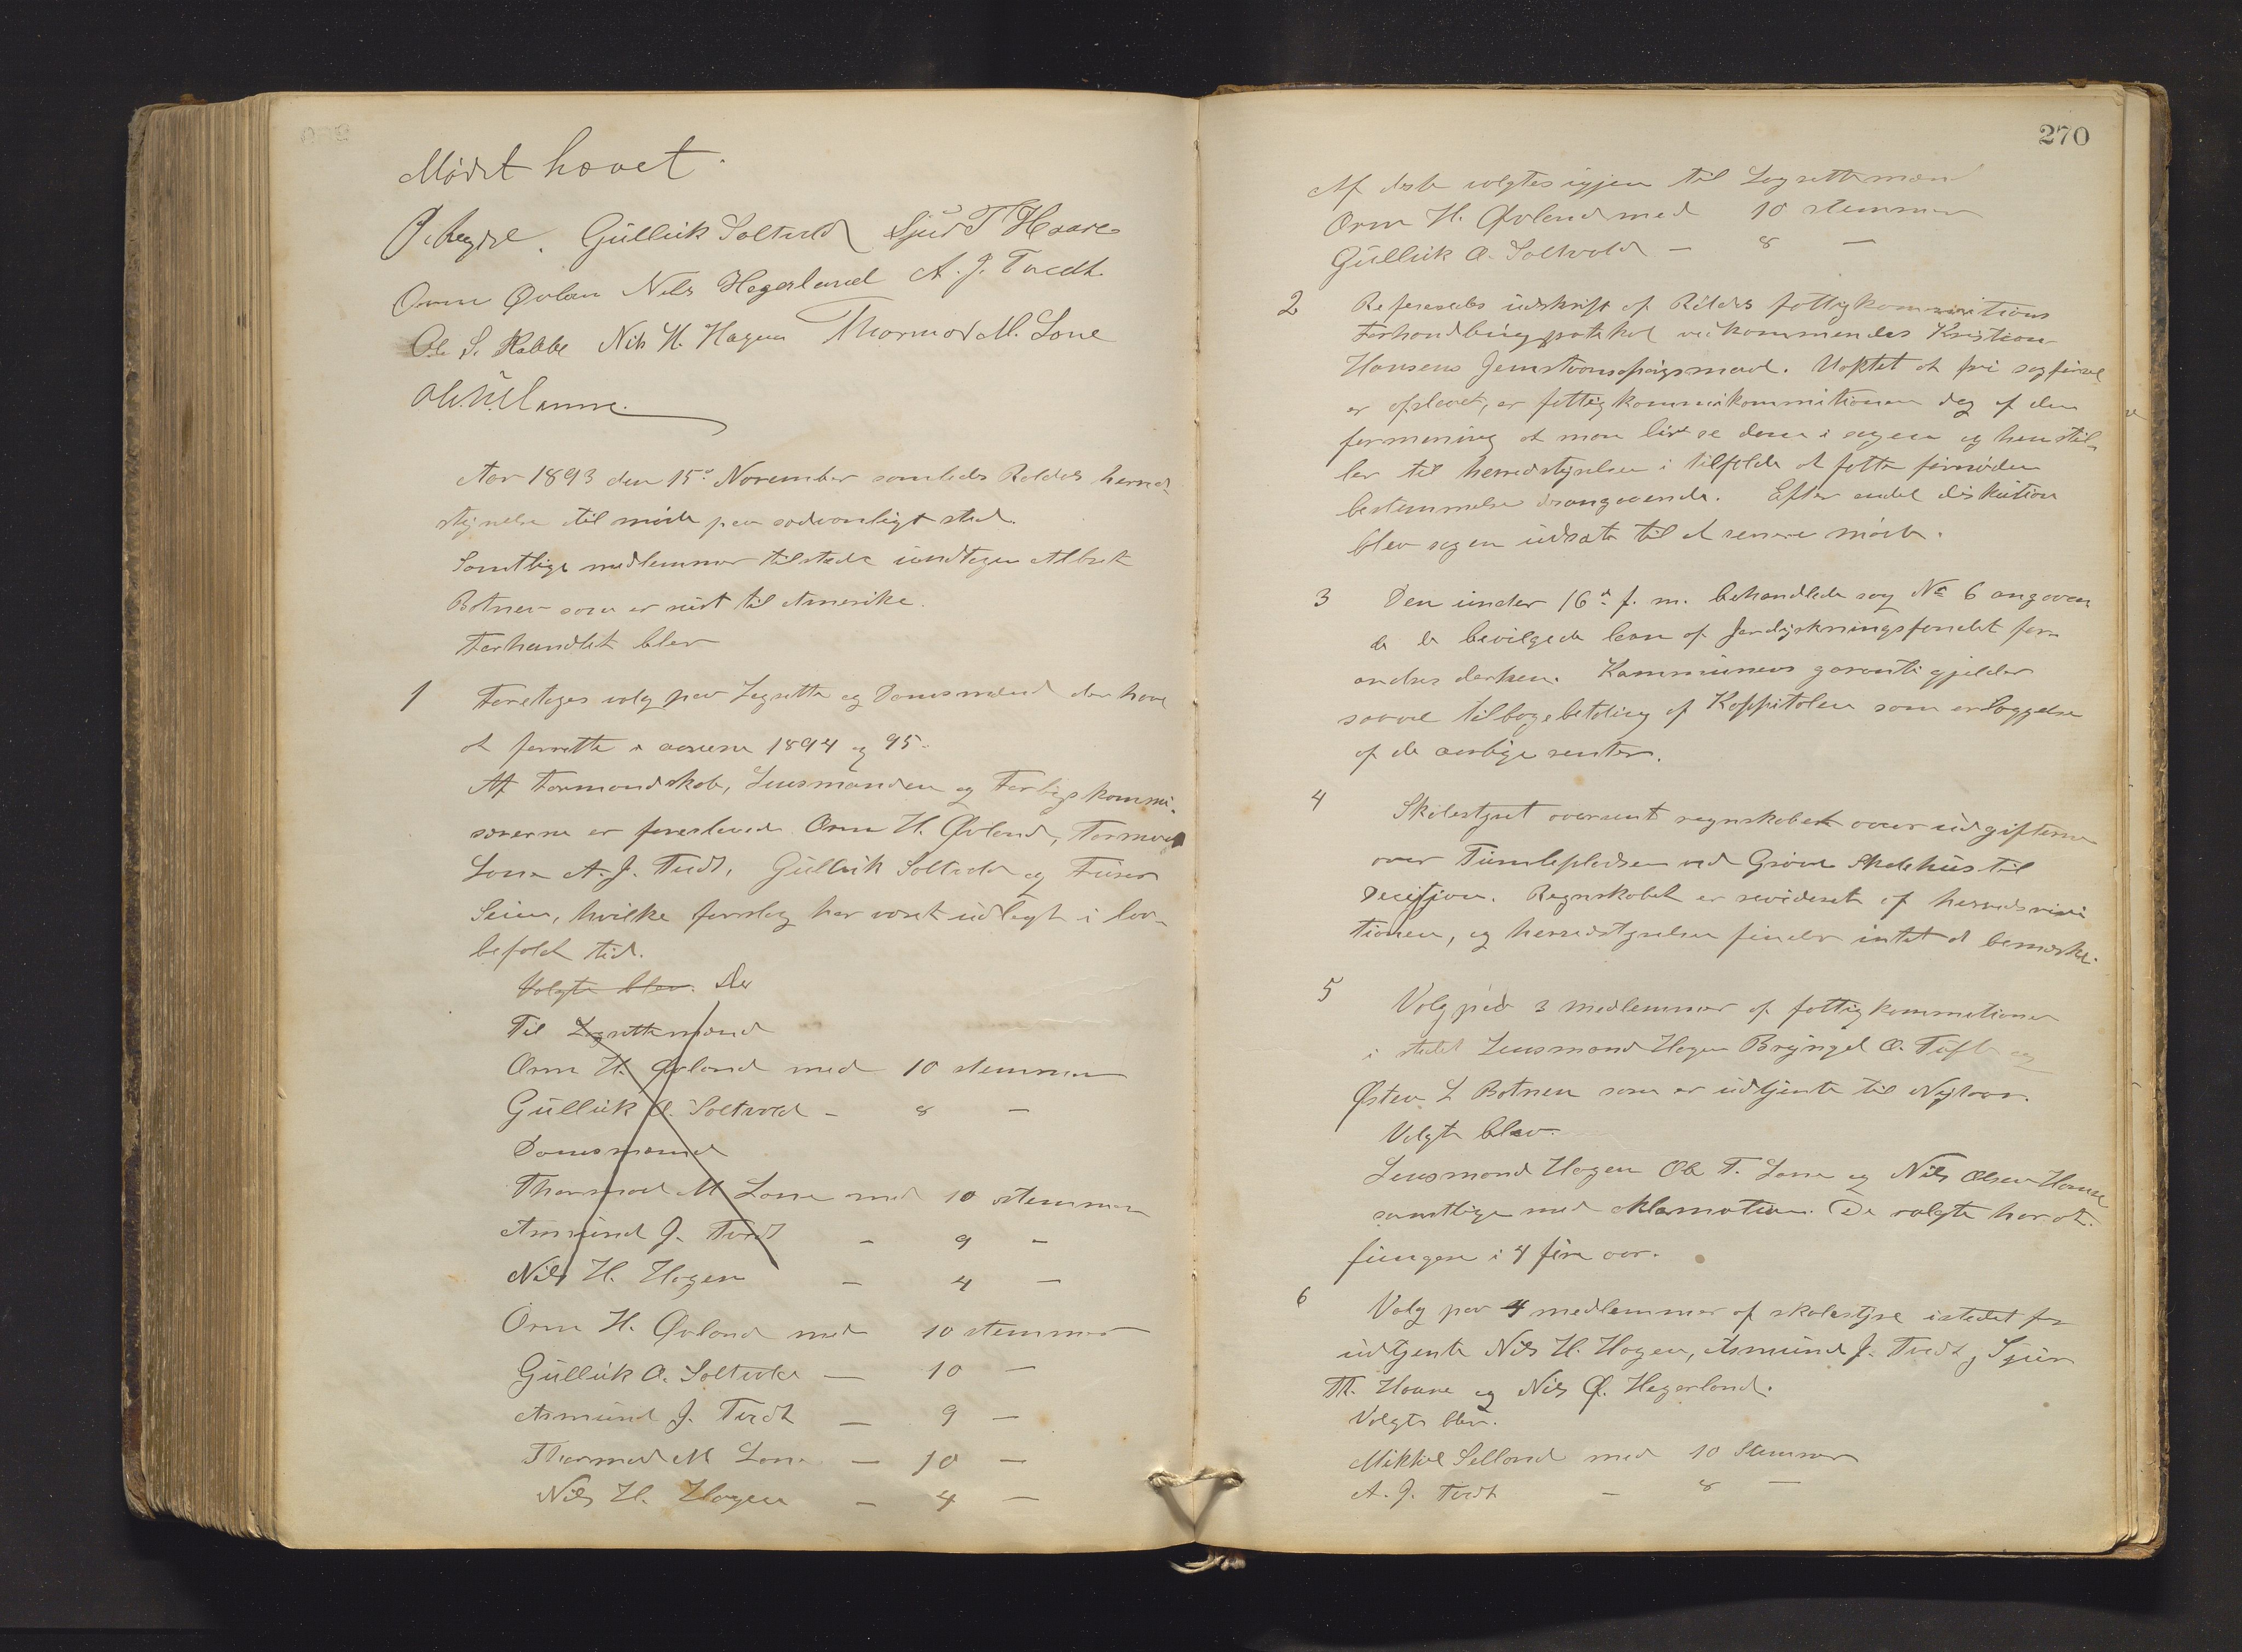 Mødet hævet.
Gulleik Soltveld Sjur T Haare
Orm Øvland Nils Hegerland A. J. Tvedt
Ole S. Rabbe Nils H. Hagen Thormod M. Lone
Aar 1893 den 15d November samledes Røldals herreds
styrelse til møde paa sædvanligt sted.
Samtlige medlemmer tilstede undtagen Albret
Botnen som er reist til Amerika.
Forhandlet blev
1 Foretoges valg paa Lagrette og Domsmænd der have
at forrette i aarene 1894 og 95.
Af Formandskab, Lensmanden og Forligskommi-
særerne er foreslaaede Orm H. Øvland, Tormod
Lone A. J. Tvedt, Gulleik Soltvedt og
Seim, hvilke forslag har været udlagt i lov-
befalet tid.
Valgte blev. De
Til Lagrettemænd
Orm H. Øvland med 10 stemmer
Gulleik O. Soltveld - 8 -
Domsmænd
Thormod M Lone med 10 stemmer
Asmund J. Tvedt - 9 -
Nils H. Hagen - 4 -
Orm H. Øvland med 10 stemmer
Gulleik O. Soltvedt - 10 -
Asmund J. Tvedt - 9 -
Thormod M Lone - 10 -
Nils H. Hagen - 4 -
270
Af disse valgtes igjen til Lagrettemænd
Orm H. Øvland med 10 stemmer
Gulleik O. Soltvold - 8 -
2 Refereredes udskrift af Røldals fattigkommissions
Forhandlingsprotokol vedkommendes Kristian
Hansens Hemstavnsspørgsmaal. Uagtet at fri sagførsel
er oplevet, er fattigkommissionen dog af den
formening at man bør se dem i sagen og henstil-
ler til herredstyrelsen i tilfælde at fatte fornøden
bestemmelse desangaaende. Efter endel diskution
blev sagen udsat til et senere møde.
3 Den under 16d f. m. behandlede sag No 6 angaaen
de de bevilgede laan af Jorddyrkningsfondet for-
andres derhen. Kommunens garanti gjelder
saavel tilbagebetaling af Kappitalen som erlæggelse
af de aarlige renter.
4 Skolestyret oversendt regnskabet over udgifterne
over Tumlepladsen ved Grøen Skolehus til
Decisjon. Regnskabet er revideret af herredsrevi
tionen, og herredstyrelsen finder intet at bemærke.
5 Valg paa 3 medlemmer af fattigkommetionen
i stedet Lensmand Hagen Bryngel O. Tufte og
Østen L Botnen som er udtjente til Nytaar.
Valgte blev.
Lensmand Hagen Ole T. Lone og Nils Olsen Hamre
samtlige med aklamation. De valgte har at
fungere i 4 fire aar.
6 Valg paa 4 medlemmer af skolestyre istedet for
udtjente Nils H. Hagen, Asmund J. Tvedt, Sjur
Th. Haare og Nils Ø. Hegerland.
Valgte blev.
Mikkel Selland med 10 Stemmer
A. J. Tvedt - 8 -